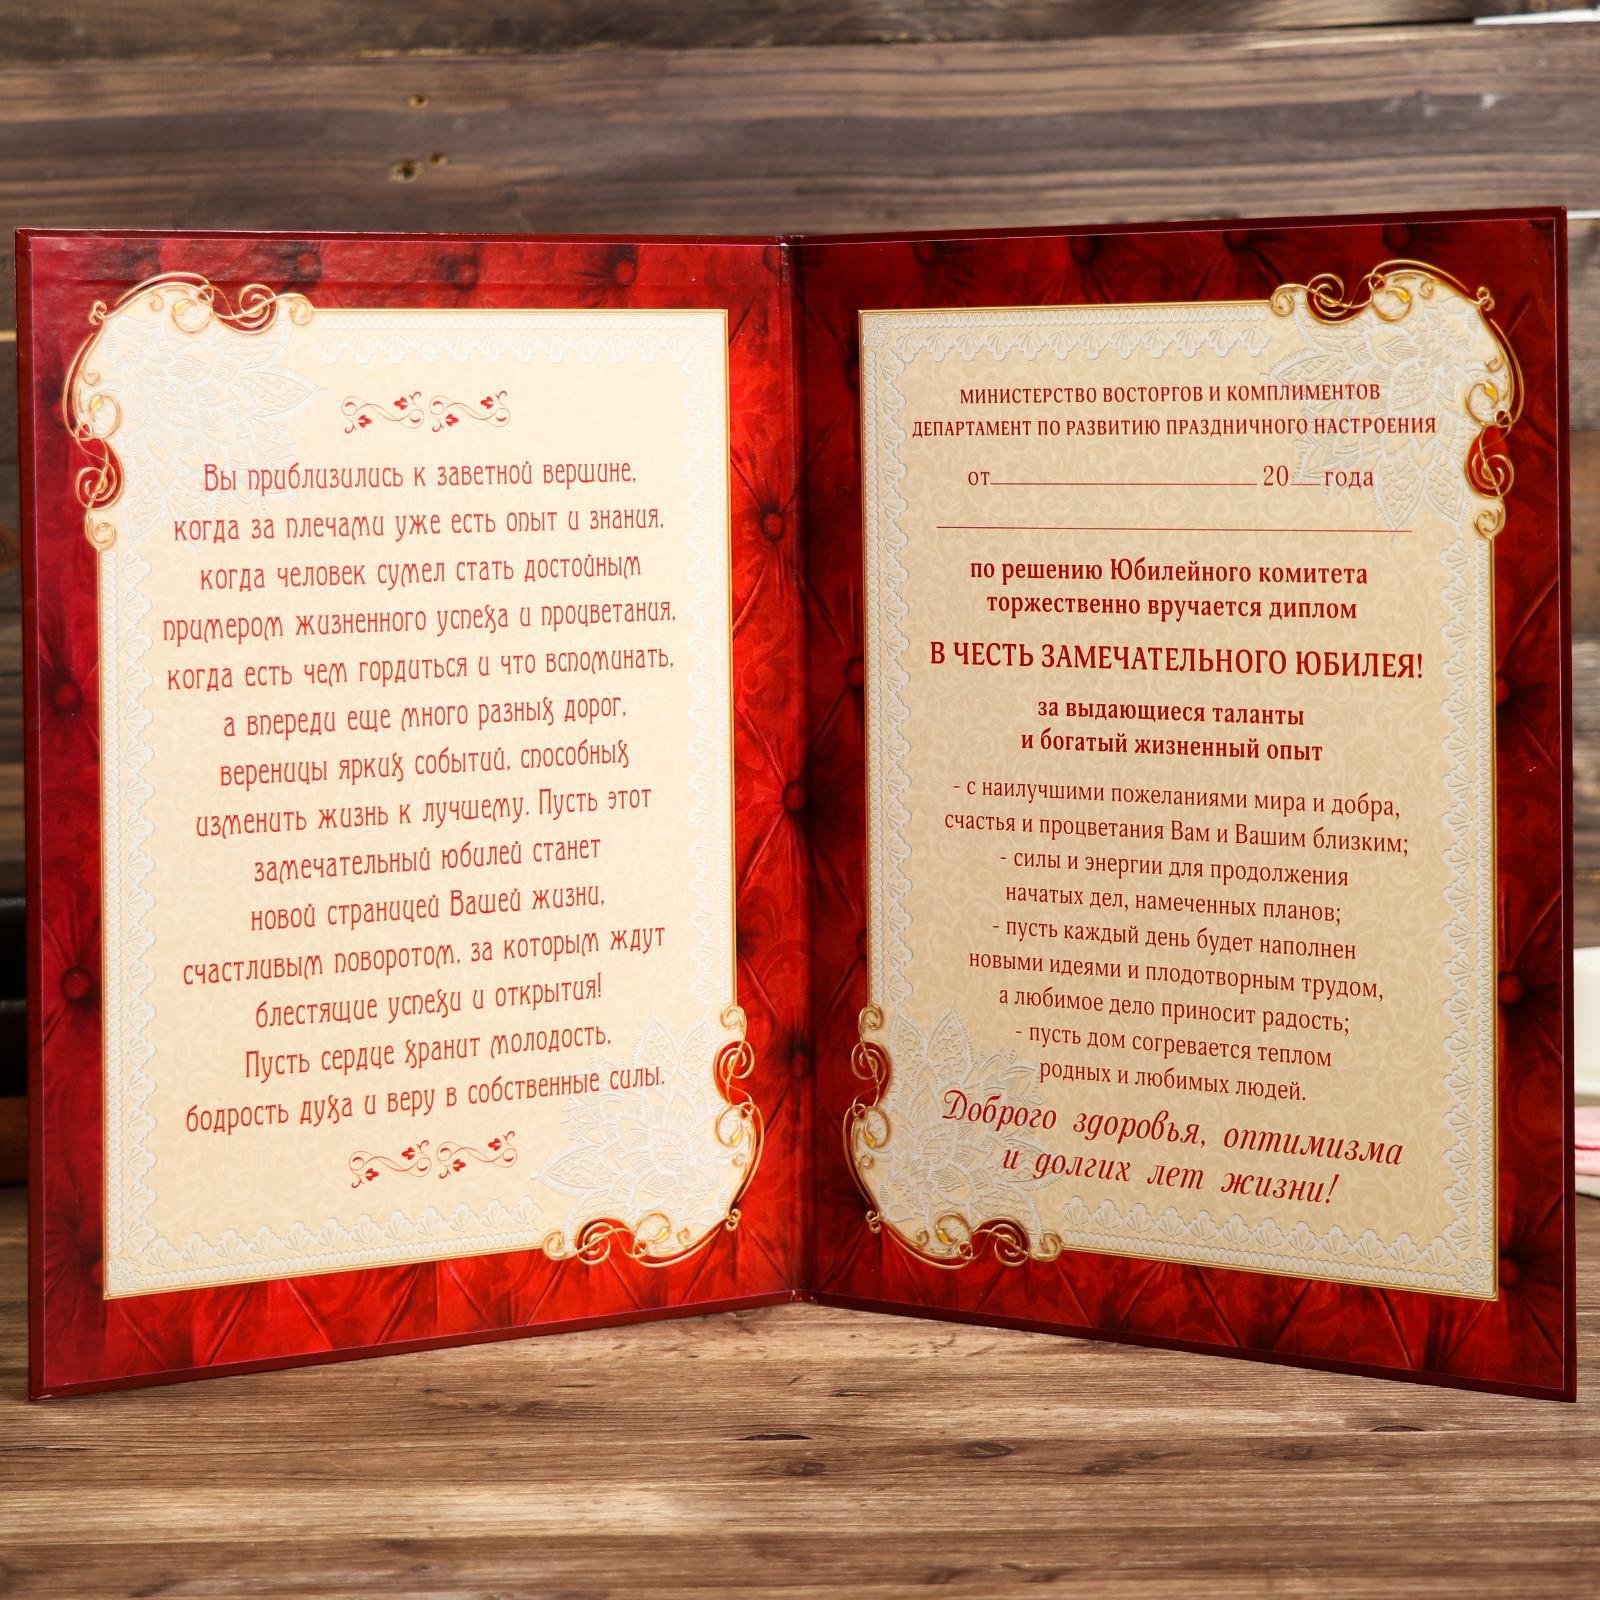 Вы приблизились к заветной вершине,
когда за плечами уже есть опыт и знания,
когда человек сумел стать достойным
примером жизненного успеха и процветания,
когда есть чем гордиться и что вспоминать,
а впереди еще много разных дорог,
вереницы ярких событий, способных
изменить жизнь к лучшему. Пусть этот
замечательный юбилей станет
новой страницей Вашей жизни,
счастливым поворотом, за которым ждут
блестящие успехи и открытия!
Пусть сердце хранит молодость,
бодрость духа и веру в собственные силы.
МИНИСТЕРСТВО ВОСТОРГОВ И КОМПЛИМЕНТОВ
ДЕПАРТАМЕНТ ПО РАЗВИТИЮ ПРАЗДНИЧНОГО НАСТРОЕНИЯ
от____________________ 20__года
по решению Юбилейного комитета
торжественно вручается диплом
В ЧЕСТЬ ЗАМЕЧАТЕЛЬНОГО ЮБИЛЕЯ!
за выдающиеся таланты
и богатый жизненный опыт
- с наилучшими пожеланиями мира и добра,
счастья и процветания Вам и Вашим близким;
- силы и энергии для продолжения
начатых дел, намеченных планов;
- пусть каждый день будет наполнен
новыми идеями и плодотворным трудом,
а любимое дело приносит радость;
- пусть дом согревается теплом
родных и любимых людей.
Доброго здоровья, оптимизма
и долгих лет жизни!